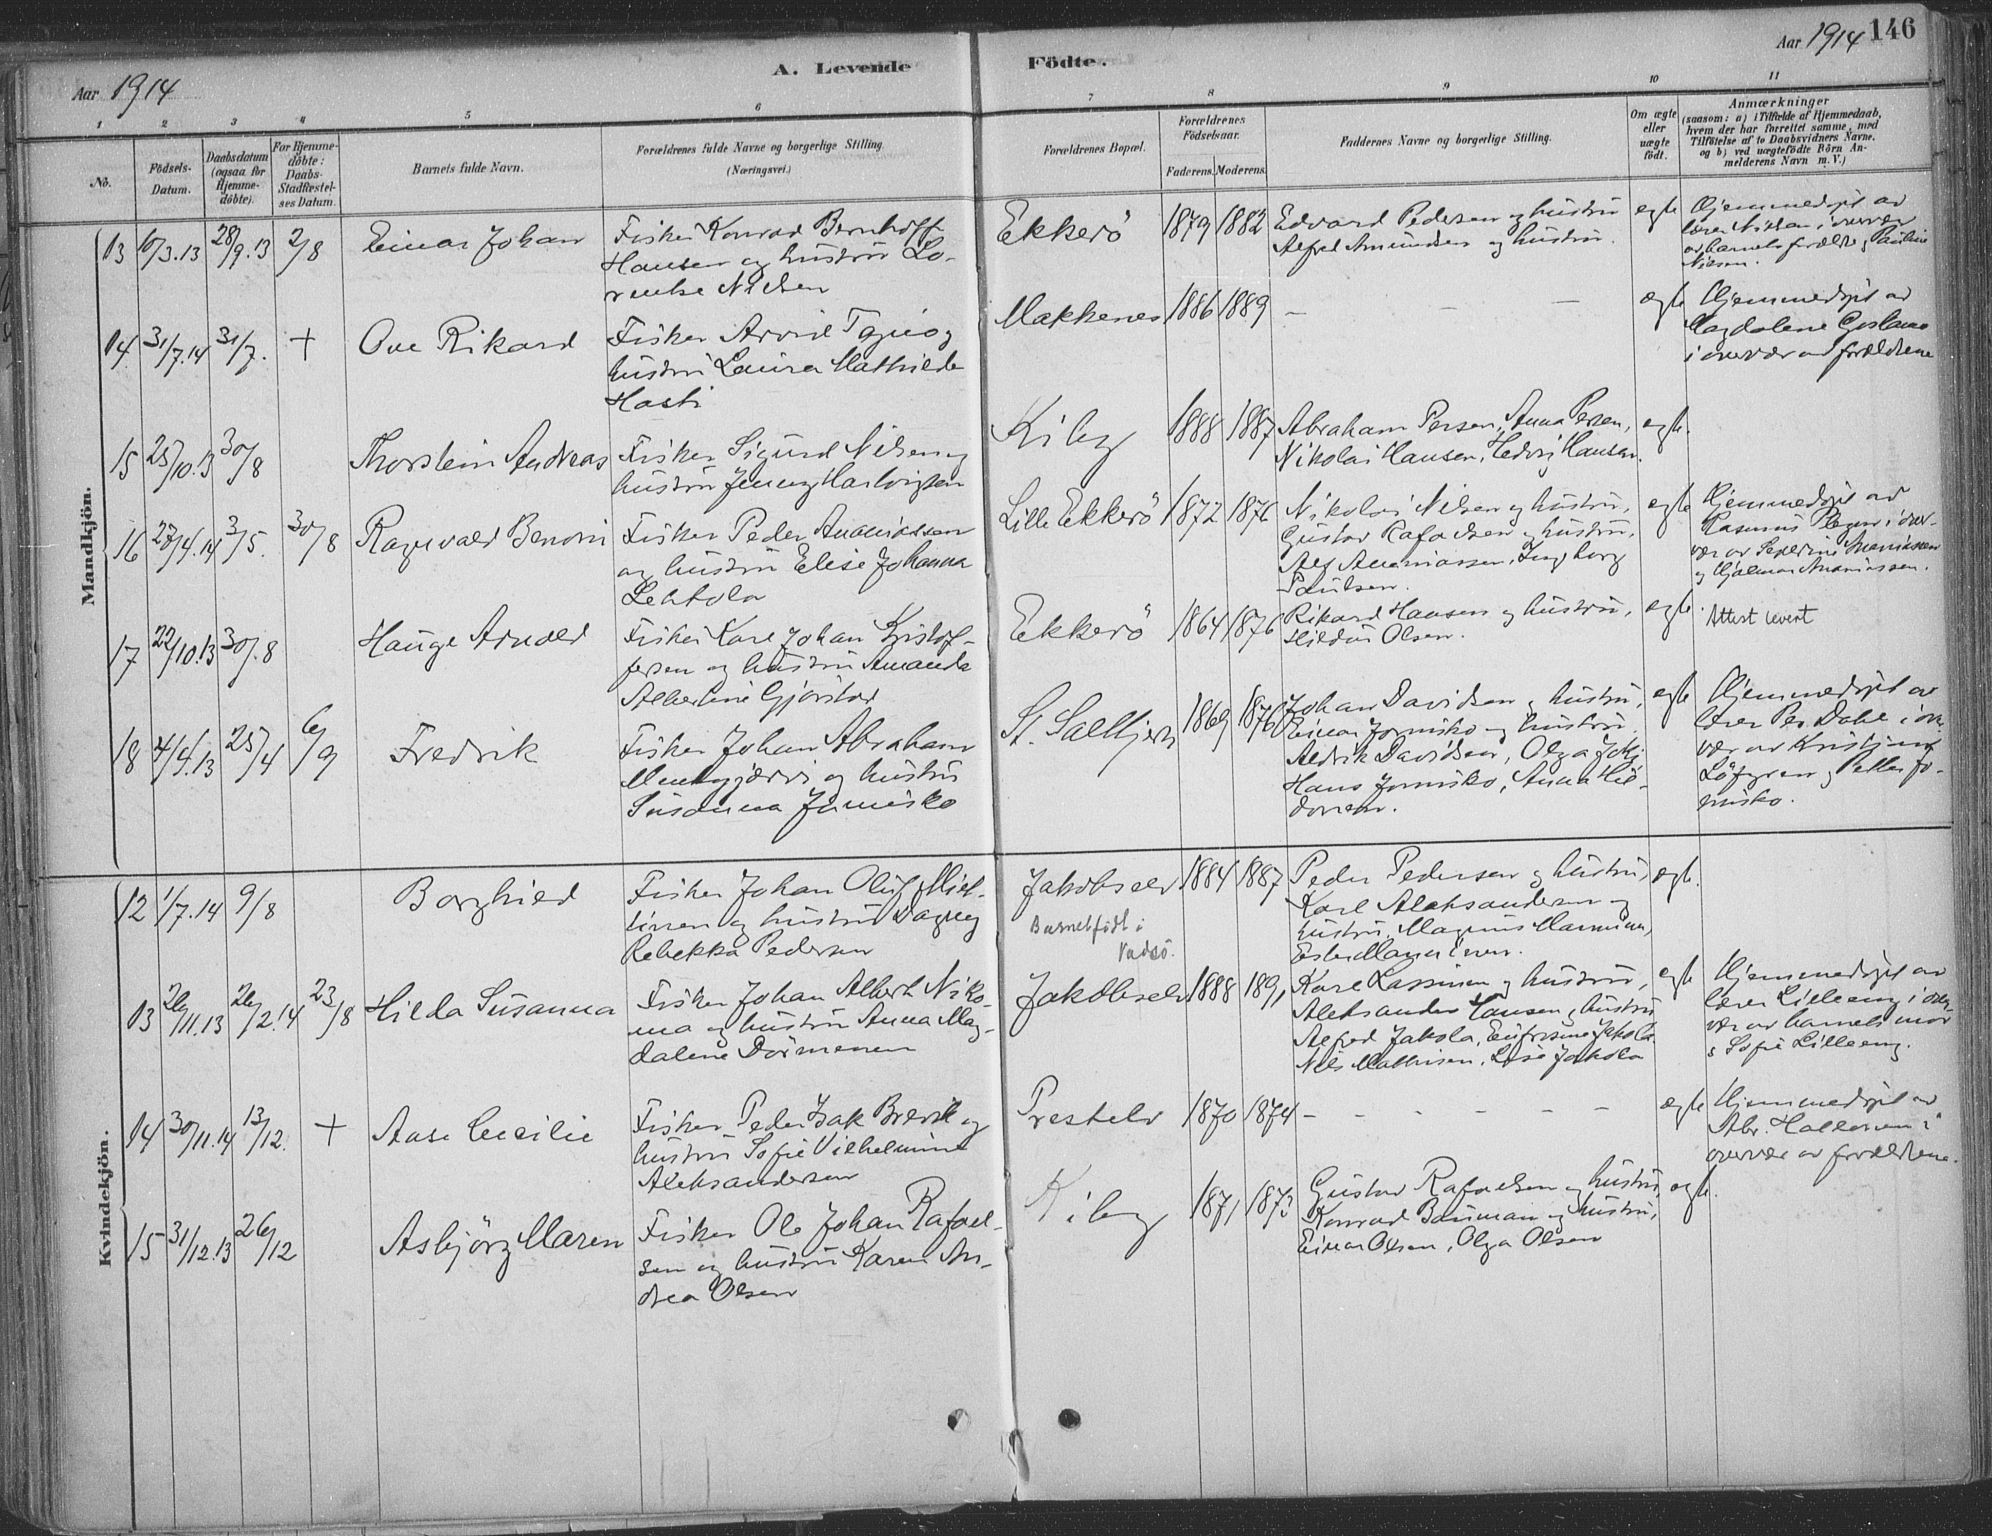 Aar 1914
A. Levende
Födte.
Aar 1914
146
1 2 3 4 5 6 7 8 9 10 11
No.
Födsels-
Datum.
Daabsdatum
(ogsaa for
Hjemme-
döbte).
For Hjemme-
döbte:
Daabs-
Stadfæstel-
ses Datum.
Barnets fulde Navn.
Forældrenes fulde Navne og borgerlige Stilling.
(Næringsvei.)
Forældrenes Bopæl.
Forældrenes
Födselsaar.
Faderens. Moderens.
Faddernes Navne og borgerlige Stilling.
Om ægte
eller
uægte
födt.
Anmærkninger
(saasom: a) i Tilfælde af Hjemmedaab,
hvem der har forrettet samme, med
Tilföielse af to Daabsvidners Navne.
og b) ved uægtefödte Börn An-
melderens Navn m. V.)
Mandkjön.
13 10/3.13 28/9.13 2/8 Einar Johan
Fisker Konrad Bernhoff
Hansen og hustru Lo-
rentse Nielsen
Ekkerö 1879 1882
Edvard Pedersen og hustru
Alfred Amundsen og hustru
egte
Hjemmedöpt av
lærer Nielsen i overvær
av barnets forældre og Pauline
Nielsen.
14. 31/7.14 31/7. + Ove Rikard
Fisker Arvid Tapio og
hustru Laura Mathilde
Hasti
Makkenes 1886 1889 — — —
egte
Hjemmedöpt av
Magdalene
i overvær av forældrene
15 25/10.13 30/8 Thorstein Andreas
Fisker Sigurd Nilsen og
hustru Jenny Hartvigsen
Kiby 1888 1887
Abraham Persen, Anna Persen,
Nikolai Hansen, Hedvig Hansen.
egte.
16 28/4.14 3/5. 30/8 Ragnvald Benoni
Fisker Peder Ananiassen
og hustru Elise Johanna
Lehtola
Lille Ekkerö 1872 1876
Nikolai Nilsen og hustru,
Gustav Rafaelsen og hustru,
Alf Ananiassen, Ingborg
Paulsen.
egte
Hjemmedöpt av
Rasmus i over-
vær av Severine Ananiassen
og Hjalmar Ananiassen.
17 22/10.13 30/.8 Hauge Arnold
Fisker Karl Johan Kristof-
fersen og hustru Amanda
Albertine Gjörstad
Ekkerö 1864 1876
Rikard Hansen og hustru,
Hildur Olsen.
egte.
Attest levert
18 4/4.13 25/4 6/9 Fredrik
Fisker Johan Abraham
og hustru
Susanna Jomisko
St. Salttjern 1869 1876
Johan Davidsen og hustru,
Einar Jormisko og hustru
Aldrik Davidsen, Olga
Hans Jormisko, Anna
egte
Hjemmedöpt av
lærer Per Dahl i over
vær av Kristine
Löfgren og Petter Jo-
misko.
Kvindekjön.
12 1/7.14 9/8 Borghild
Fisker Johan Oluf Miet-
tinen og hustru Dagny
Rebekka Pedersen
Jakobselv
Barnet födt i
Vadsö.
1884 1887
Peder Pedersen og hustru,
Karl Aleksandersen og
hustru, Magnus Manninen,
Ester Manninen.
egte.
13 26/11.13 26/2.14 23/8 Hilda Susanna
Fisker Johan Albert Niko-
ma og hustru Anna Mag-
dalene Dörmenen
Jakobselv 1888 1891
Karl Lassinen og hustru,
Aleksander Hansen, hustru
Alfred Jakola, Eufrosine Jakola
Nils Mathisen, Lise Jakola
egte
Hjemmedöpt av
lærer Lilleeng i over-
vær av barnets mor
& Sofie Lilleeng.
14 30/11.14 13/12. + Aase Cecilie
Fisker Peder Isak Brevik og
hustru Sofie Vilhelmine
Aleksandersen
Prestelv 1870 1874 — - - - - -
egte
Hjemmedöpt av
Abr. Halle i
overvær av forældrene.
15 31/12.13 26/12 Asbjörg Maren
Fisker Ole Johan Rafael-
sen og hustru Karen An-
drea Olsen
Kiby 1871 1873
Gustav Rafaelsen og hustru,
Konrad Bauman og hustru,
Einar Olsen, Olga Olsen
egte.